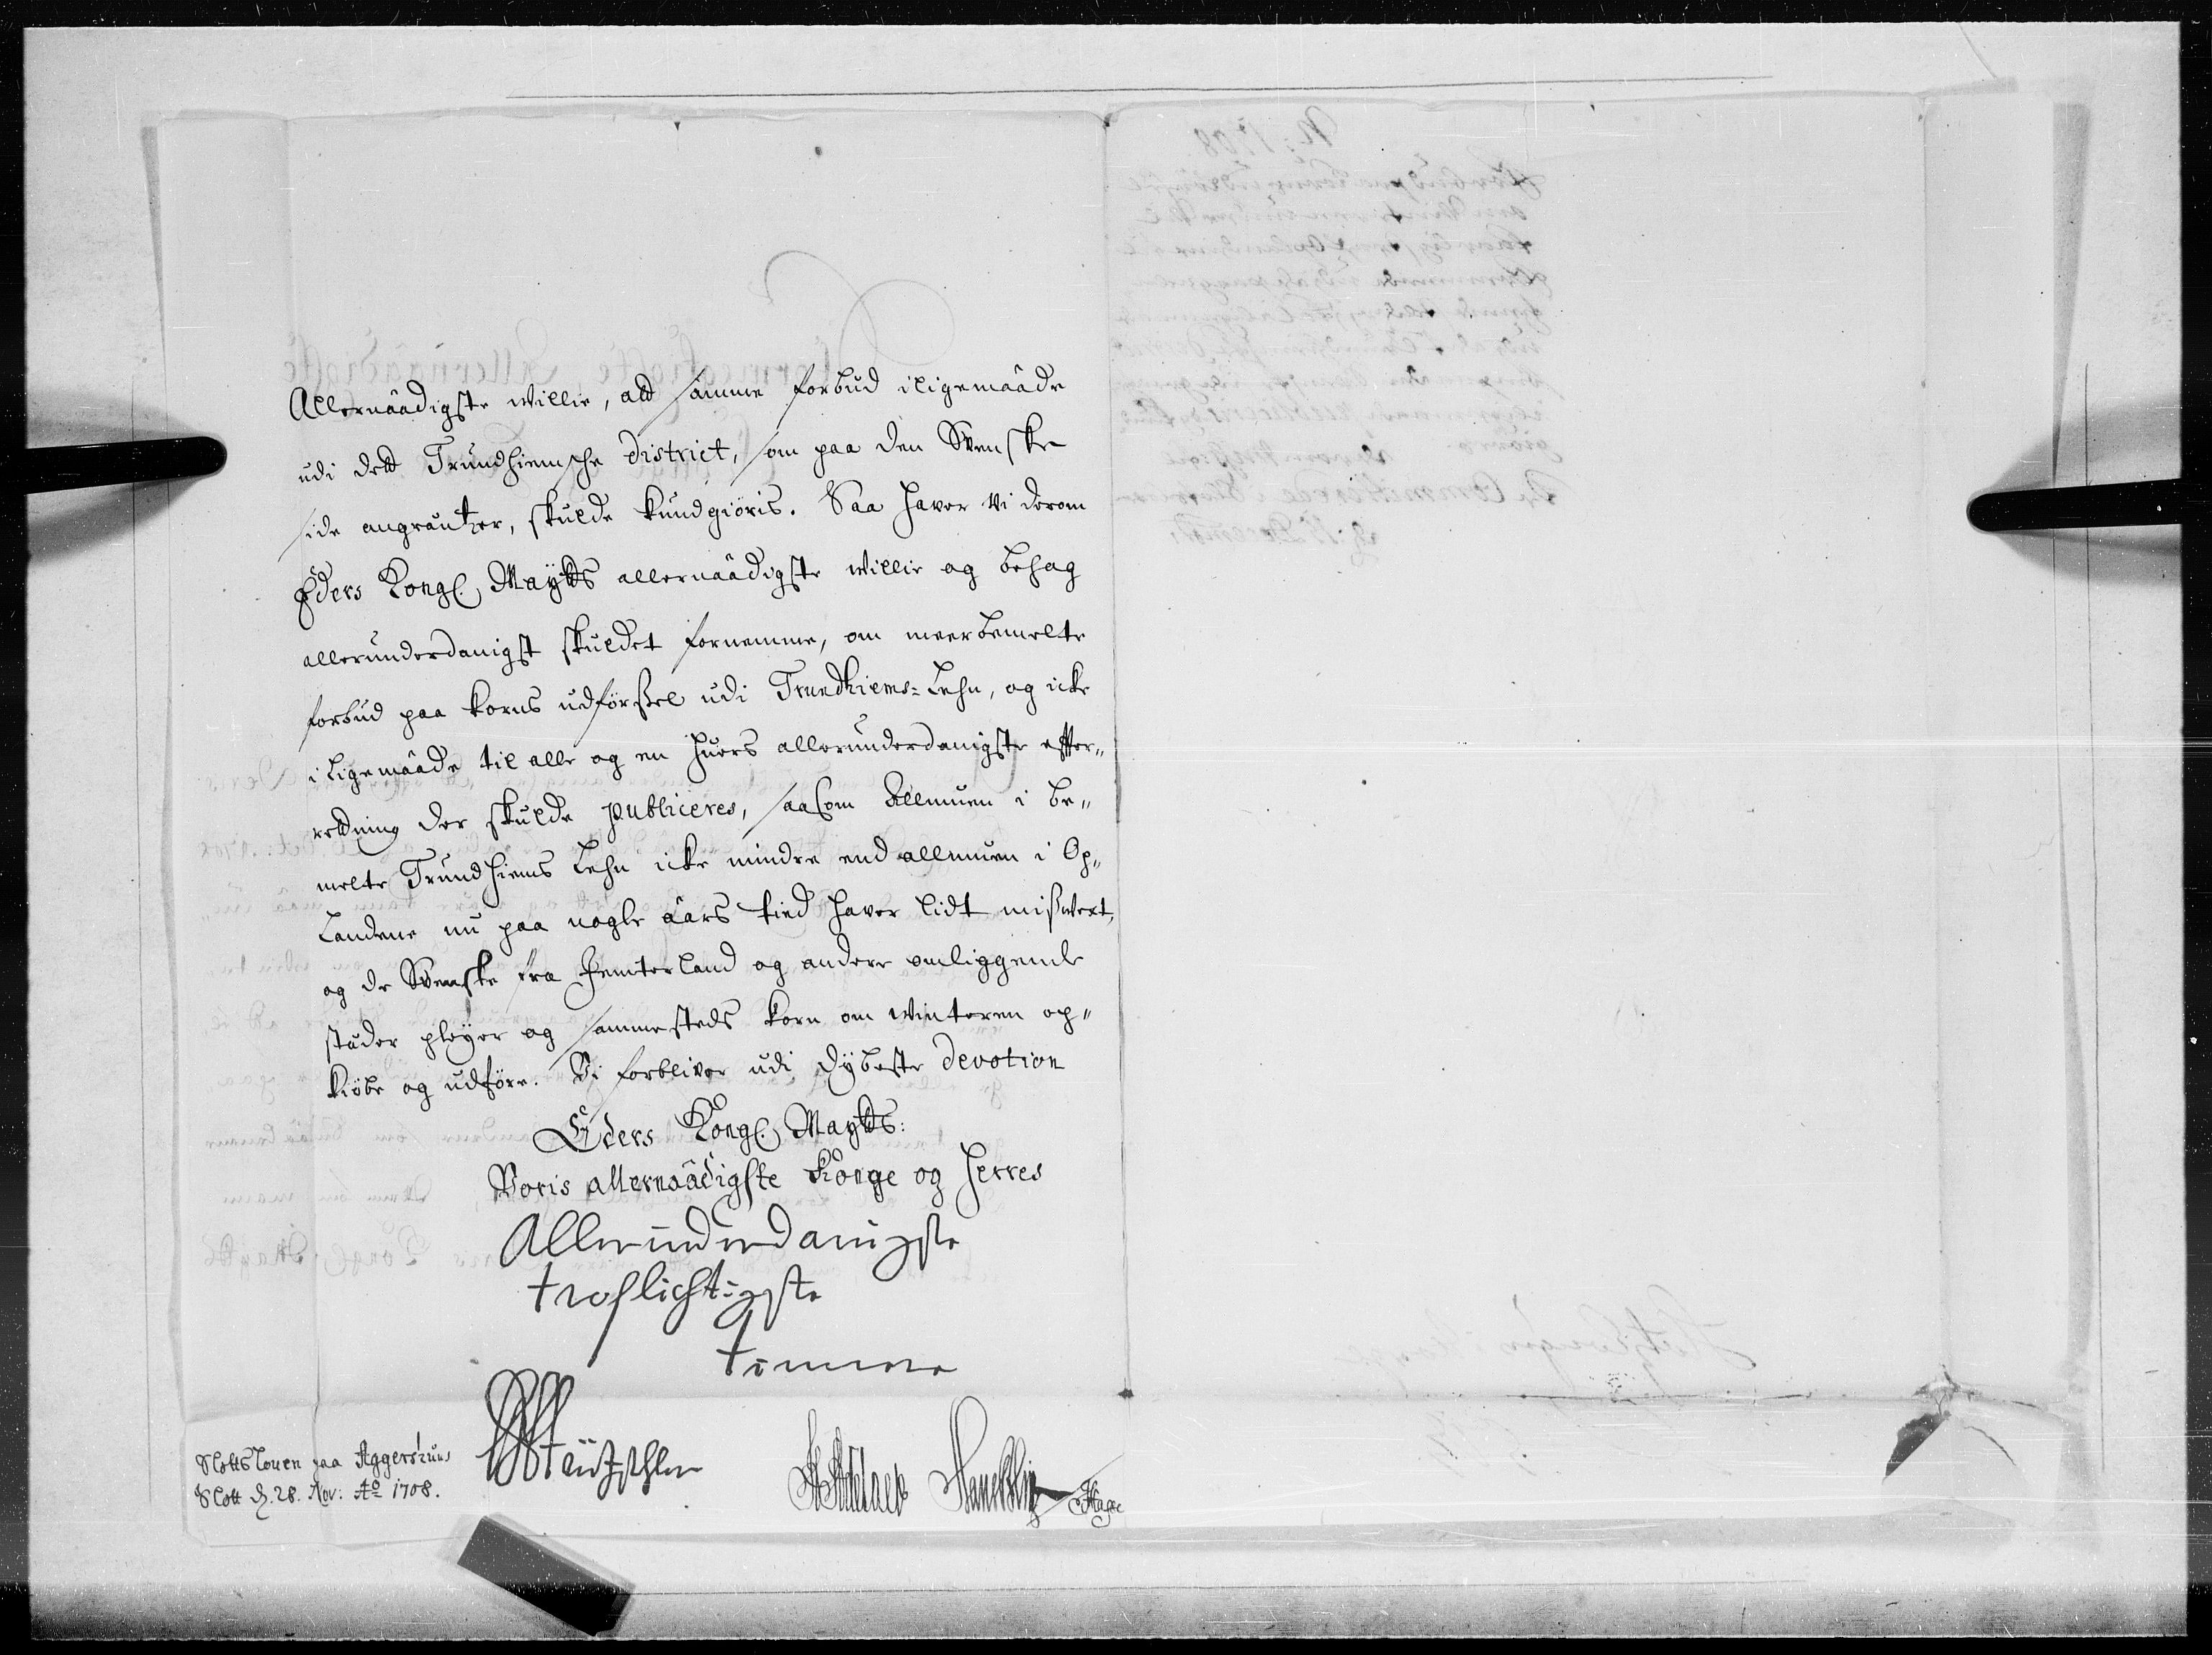 Allernaadigste willie, att samme forbud iligemaade
udi dett Trundhiemsche district, som paa den Svenske
side angräntzer, skulde kundgiøris. Saa haver vi derom
Eders Kongl. Maytts allernaadigste willie og behag
allerunderdanigst skuldet fornemme, om meerbemelte
forbud paa korns udførßel udi Trundhiems-Lehn, og icke
i ligemaade til alle og en huers allerunderdanigste effter„
rettning der skulde publiceres, saasom Allmuen i be„
melte Trundhiems Lehn icke mindre end allmuen i Op„
Landene nu paa nogle aars tied haver lidt mißvext,
og de Svenske fra Jemterland og andere omliggende
stæder pleyer og sammesteds korn om winteren op„
kiøbe og udføre. Vi forbliver udi dybeste devotion
Eders Kongl. Maytts:
Voris allernaadigste Konge og Herres
Allerunderdanigste
trepflichtigste
tienere
Slottsloven paa Aggershuus
Slott d. 28. Nov: Ao 1708.
Hage